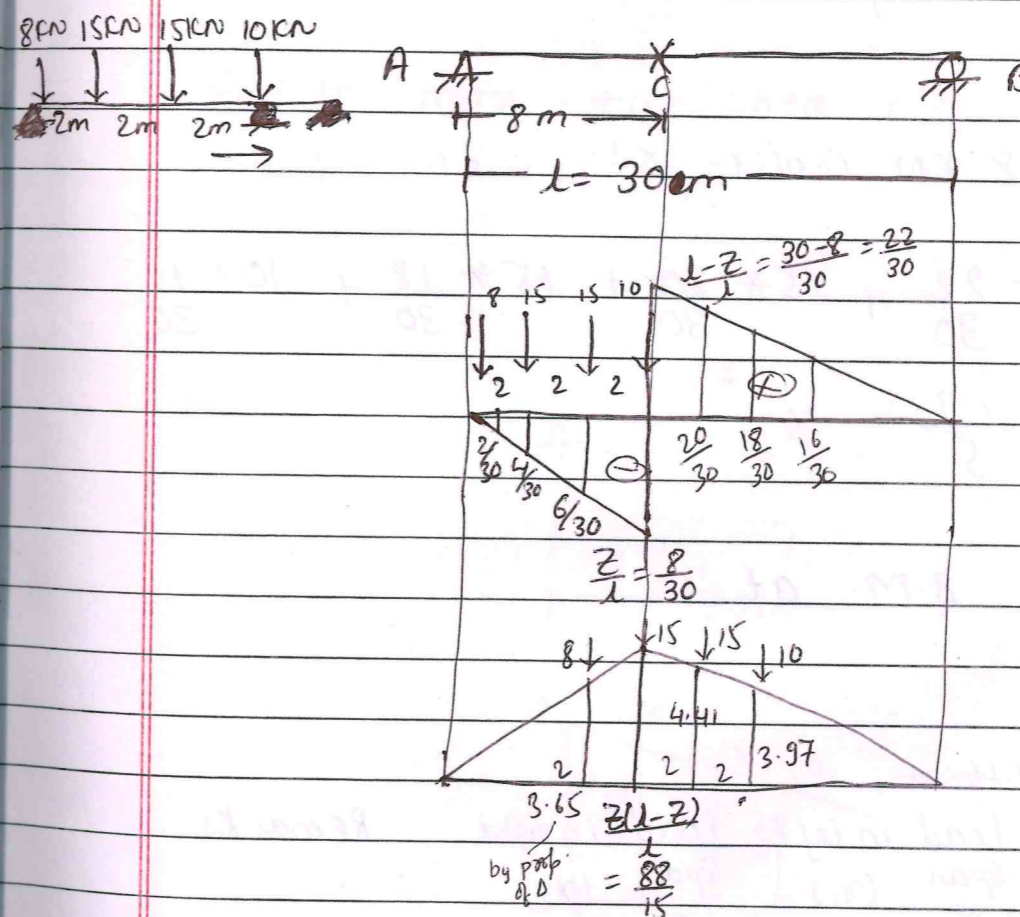 8KN 15KN 15KN 10KN
A
C
B
2m 2m 2m
8m
l = 30m
l-Z/l = 30-8/30 = 22/30
8 15 15 10
2 2 2
+
2/30 4/30 6/30
-
20/30 18/30 16/30
Z/l = 8/30
8 15 15 10
4.41
3.97
2 2 2
3.65
Z(l-Z)/l
by prop. of Δ
= 88/15